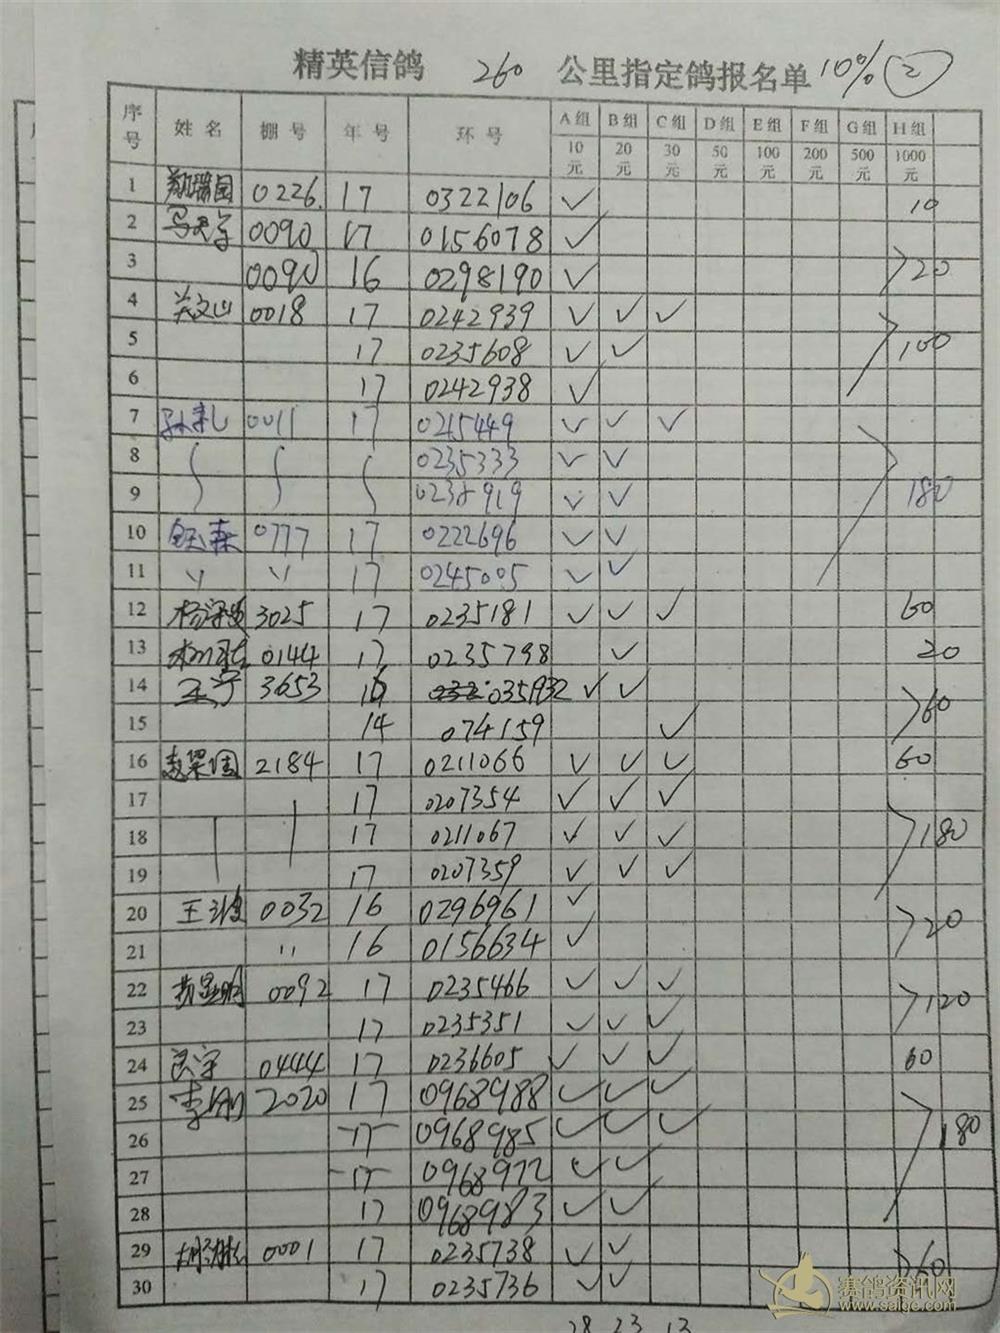 精英信鸽 260 公里指定鸽报名单 10% ②
序号 姓名 棚号 年号 环号 A组 B组 C组 D组 E组 F组 G组 H组
10元 20元 30元 50元 100元 200元 500元 1000元
1 0226. 17 0322106 ✓ 10
2 0090 17 0156078 ✓
3 0090 16 0298190 ✓ >20
4 关文山 0018 17 0242939 ✓ ✓ ✓
5 17 0235608 ✓ ✓ >100
6 17 0242938 ✓
7 孙礼 0011 17 0215449 ✓ ✓ ✓
8 0235333 ✓ ✓
9 ✓ ✓ 180
10 0777 17 0222696 ✓ ✓
11 〃 〃 17 0245005 ✓ ✓
12 3025 17 0235181 ✓ ✓ ✓ 60
13 0144 17 0235798 ✓ 20
14 王宁 3653 16 035932 ✓ ✓ >60
15 14 074159 ✓
16 2184 17 0211066 ✓ ✓ ✓ 60
17 17 0207354 ✓ ✓ ✓
18 17 0211067 ✓ ✓ ✓ >180
19 17 0207359 ✓ ✓ ✓
20 王波 0032 16 0296961 ✓
21 〃 16 0156634 ✓ >20
22 0092 17 0235466 ✓ ✓ ✓
23 17 0235351 ✓ ✓ ✓ >120
24 0444 17 0236605 ✓ ✓ ✓ 60
25 李刚 2020 17 0968988 ✓ ✓ ✓
26 17 0968985 ✓ ✓ ✓ 180
27 17 0968972 ✓ ✓
28 17 0968983 ✓ ✓
29 0001 17 0235738 ✓ ✓
30 17 0235736 ✓ ✓ >60
28 23 13
赛鸽资讯网
www.saige.com